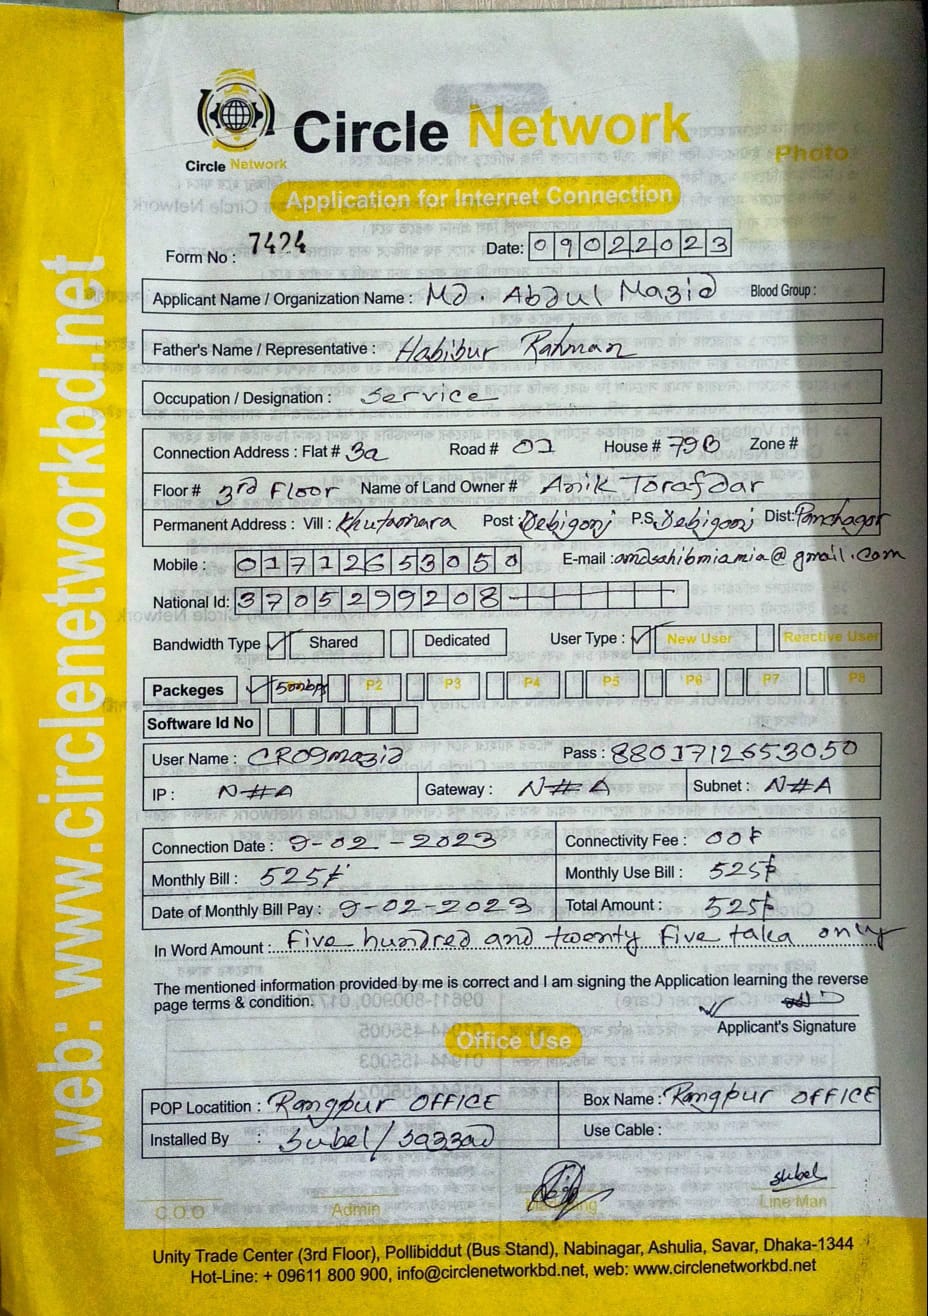 Circle Network
Circle Network
Photo
Application for Internet Connection
Form No : 7424 Date: 09022023
Applicant Name / Organization Name : Md. Abdul Mazid Blood Group :
Father's Name / Representative : Habibur Rahman
Occupation / Designation : Service
Connection Address : Flat # 3a Road # 01 House # 79B Zone #
Floor # 3rd Floor Name of Land Owner # Anik Torafdar
Permanent Address : Vill : Khutamara Post : Debiganj P.S. Debiganj Dist: Panchagar
Mobile : 01712653050 E-mail : amdsahibmiamia@gmail.com
National Id: 3705299208
Bandwidth Type ✓ Shared Dedicated User Type : ✓ New User Reactive User
Packeges ✓ 500mbps P2 P3 P4 P5 P6 P7 P8
Software Id No
User Name : CR09mazid Pass : 8801712653050
IP : N#A Gateway : N#A Subnet : N#A
Connection Date : 9-02-2023 Connectivity Fee : 00৳
Monthly Bill : 525৳ Monthly Use Bill : 525৳
Date of Monthly Bill Pay : 9-02-2023 Total Amount : 525৳
In Word Amount : Five hundred and twenty five taka only
The mentioned information provided by me is correct and I am signing the Application learning the reverse
page terms & condition.
Applicant's Signature
Office Use
POP Locatition : Rangpur OFFICE Box Name : Rangpur OFFICE
Installed By : Subel/Sazzad Use Cable :
subel
C.O.O Admin Marketing Line Man
Unity Trade Center (3rd Floor), Pollibiddut (Bus Stand), Nabinagar, Ashulia, Savar, Dhaka-1344
Hot-Line: + 09611 800 900, info@circlenetworkbd.net, web: www.circlenetworkbd.net
web: www.circlenetworkbd.net